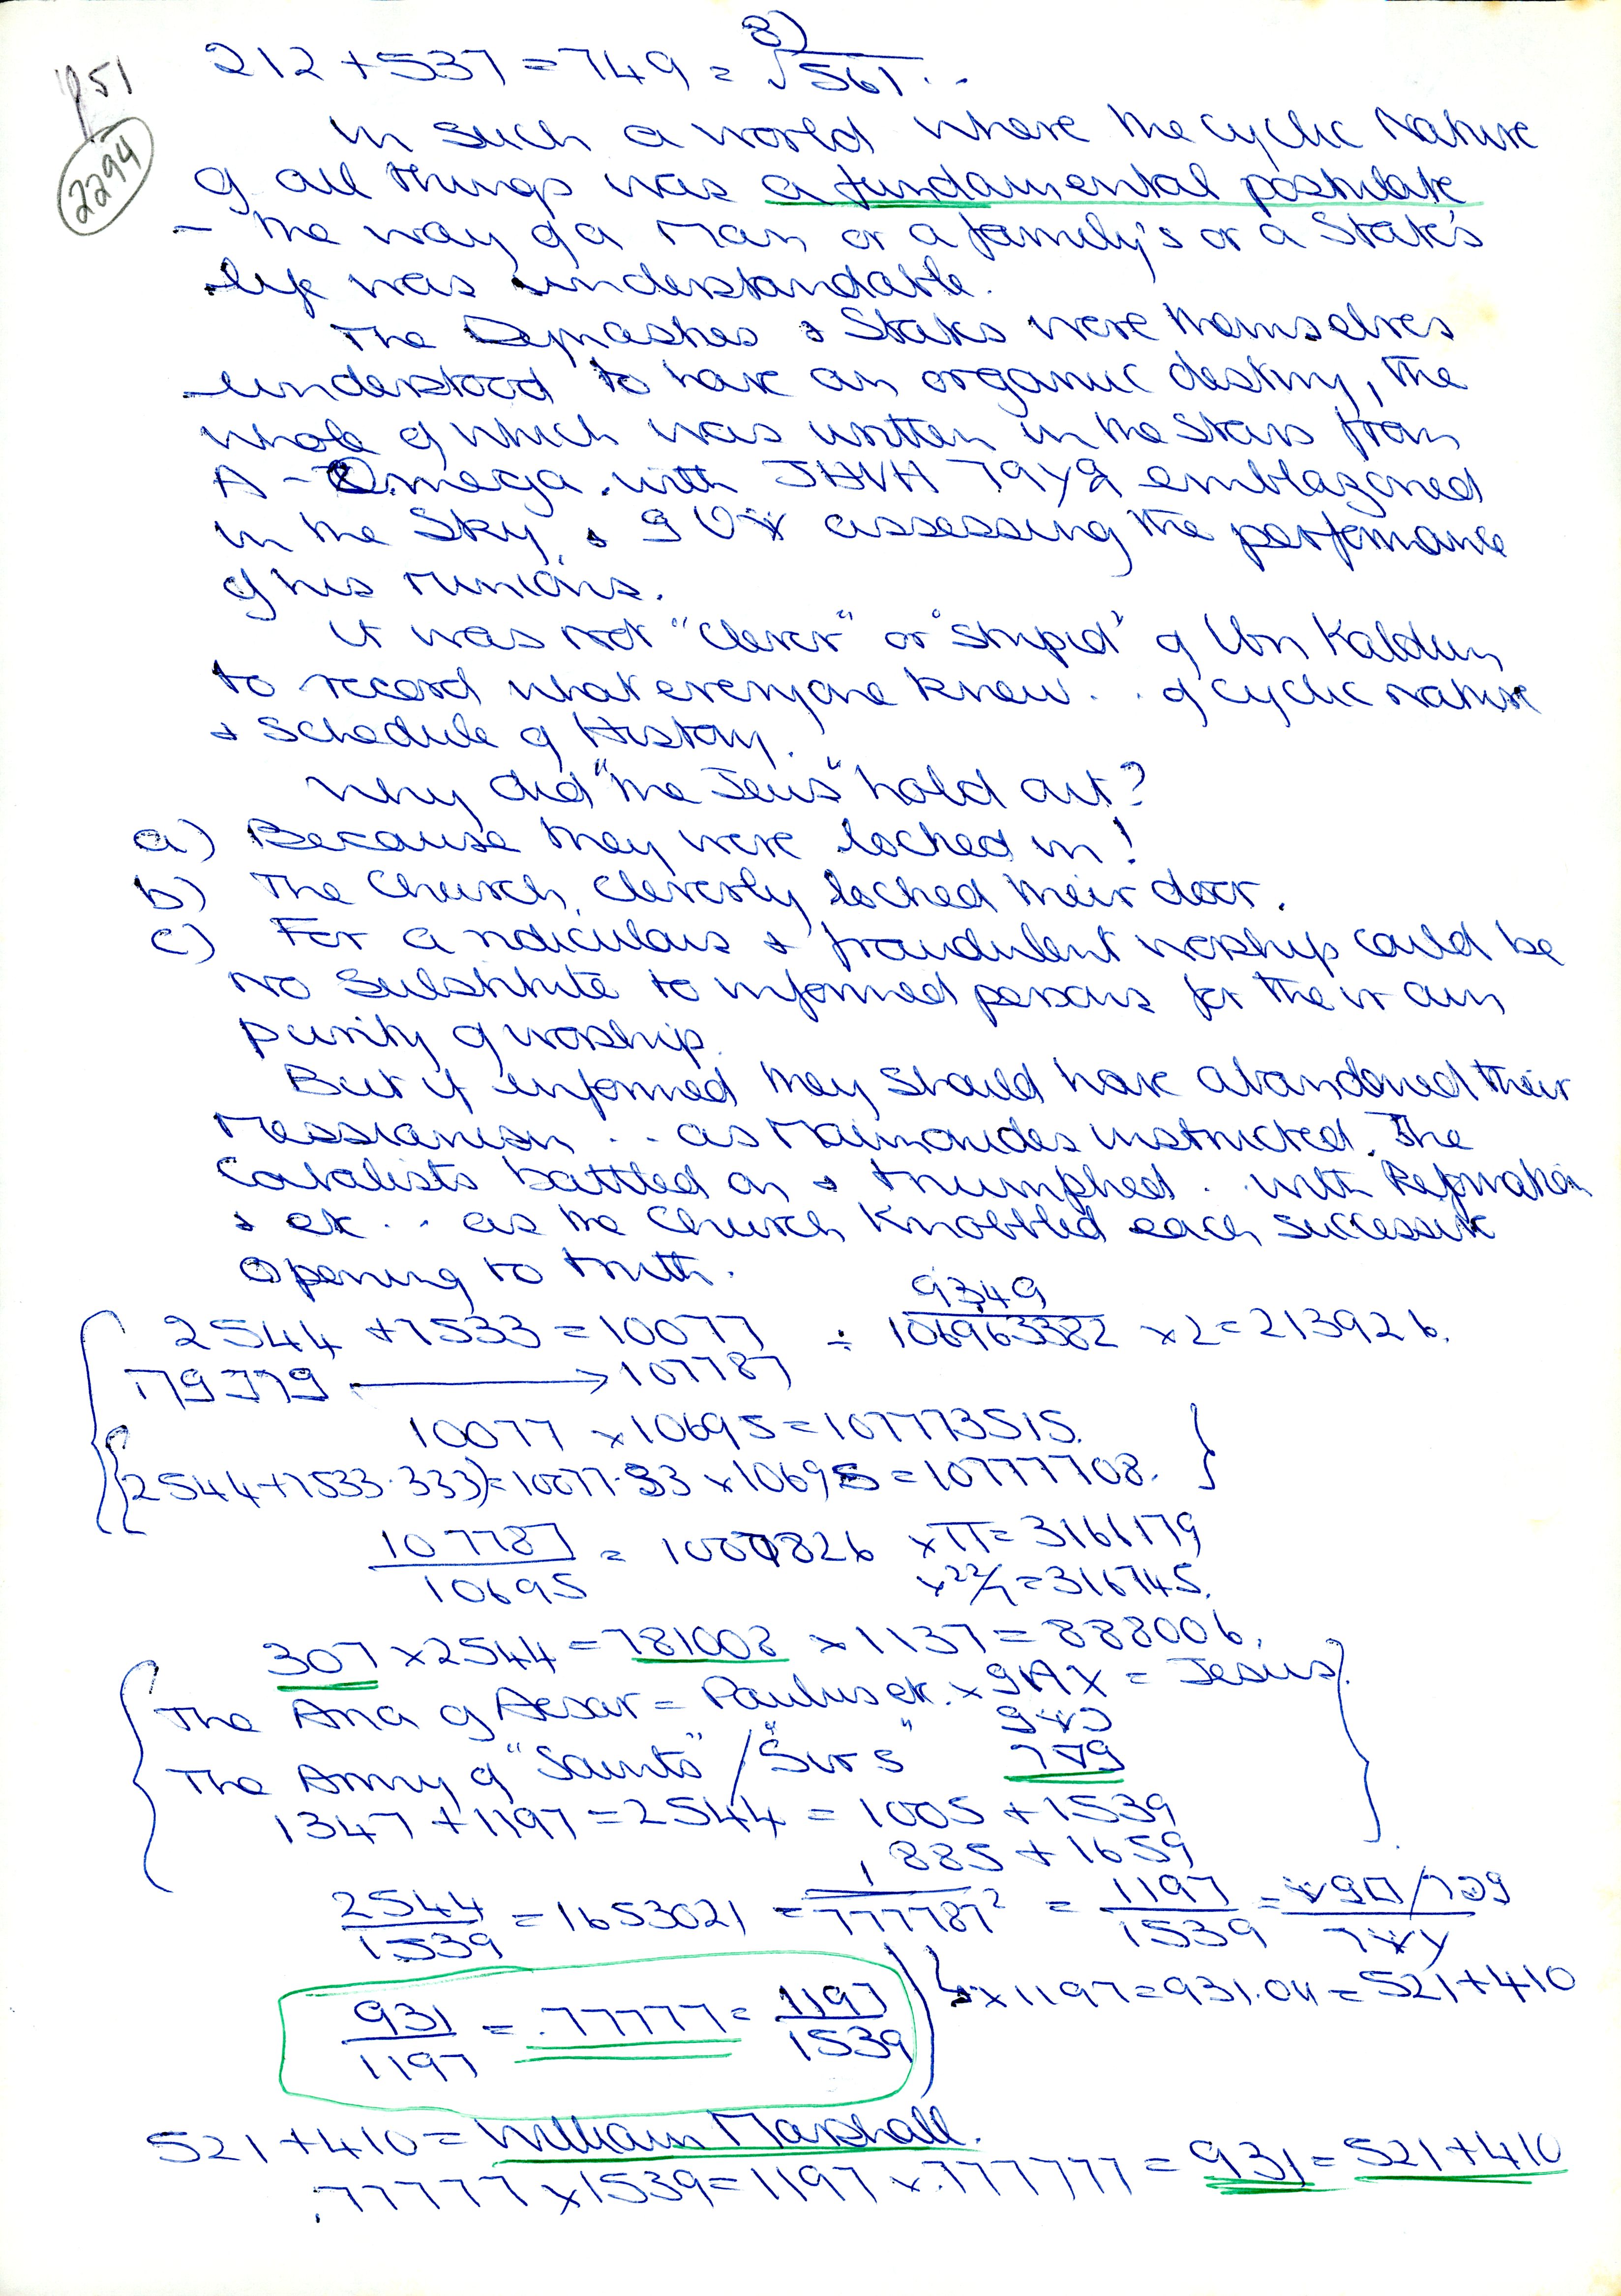 8)
p51
2294
212 + 537 = 749 = √561..
In such a world where the cyclic Nature
of all things was a fundamental postulate
- the way of a Man or a family's or a State's
life was understandable.
The Dynasties & States were themselves
understood to have an organic destiny, the
whole of which was written in the Stars from
A - Omega. with JHVH emblazoned
in the Sky, & assessing the performance
of his minions.
It was not "clever" or "stupid" of Ibn Kaldun
to record what everyone knew.. of cyclic nature
& Schedule of History.
Why did "the Jews" hold out?
a) Because they were locked in!
b) The Church, cleverly locked their door.
c) For a ridiculous & fraudulent worship could be
no Substitute to informed persons for their own
purity of worship.
But if informed they should have abandoned their
Messianism... as Maimonides instructed. The
Cabalists battled on & triumphed.. with Reformation
& etc... as the Church Knobbled each successive
opening to truth.
2544 + 7533 = 10077 ÷ 9349/106963382 x 2 = 213926.
→ 107787
10077 x 10695 = 107773515.
(2544+7533.333) = 10077.33 x 10695 = 10777708.
107787/10695 = x π = 3166179
x 22/7 = 316745.
307 x 2544 = 781008 x 1137 = 888006.
The Aria of Aesar = Paulus etc. x = Jesus.
The Army of "Saints" / "Sirs"
1347 + 1197 = 2544 = 1005 + 1539
885 + 1659
2544/1539 = 1653021 = 1/777787² = 1197/1539 =
931/1197 = .77777 = 1197/1539
x 1197 = 931.04 = 521 + 410
521 + 410 = William Marshall.
.77777 x 1539 = 1197 x .777777 = 931 = 521 + 410